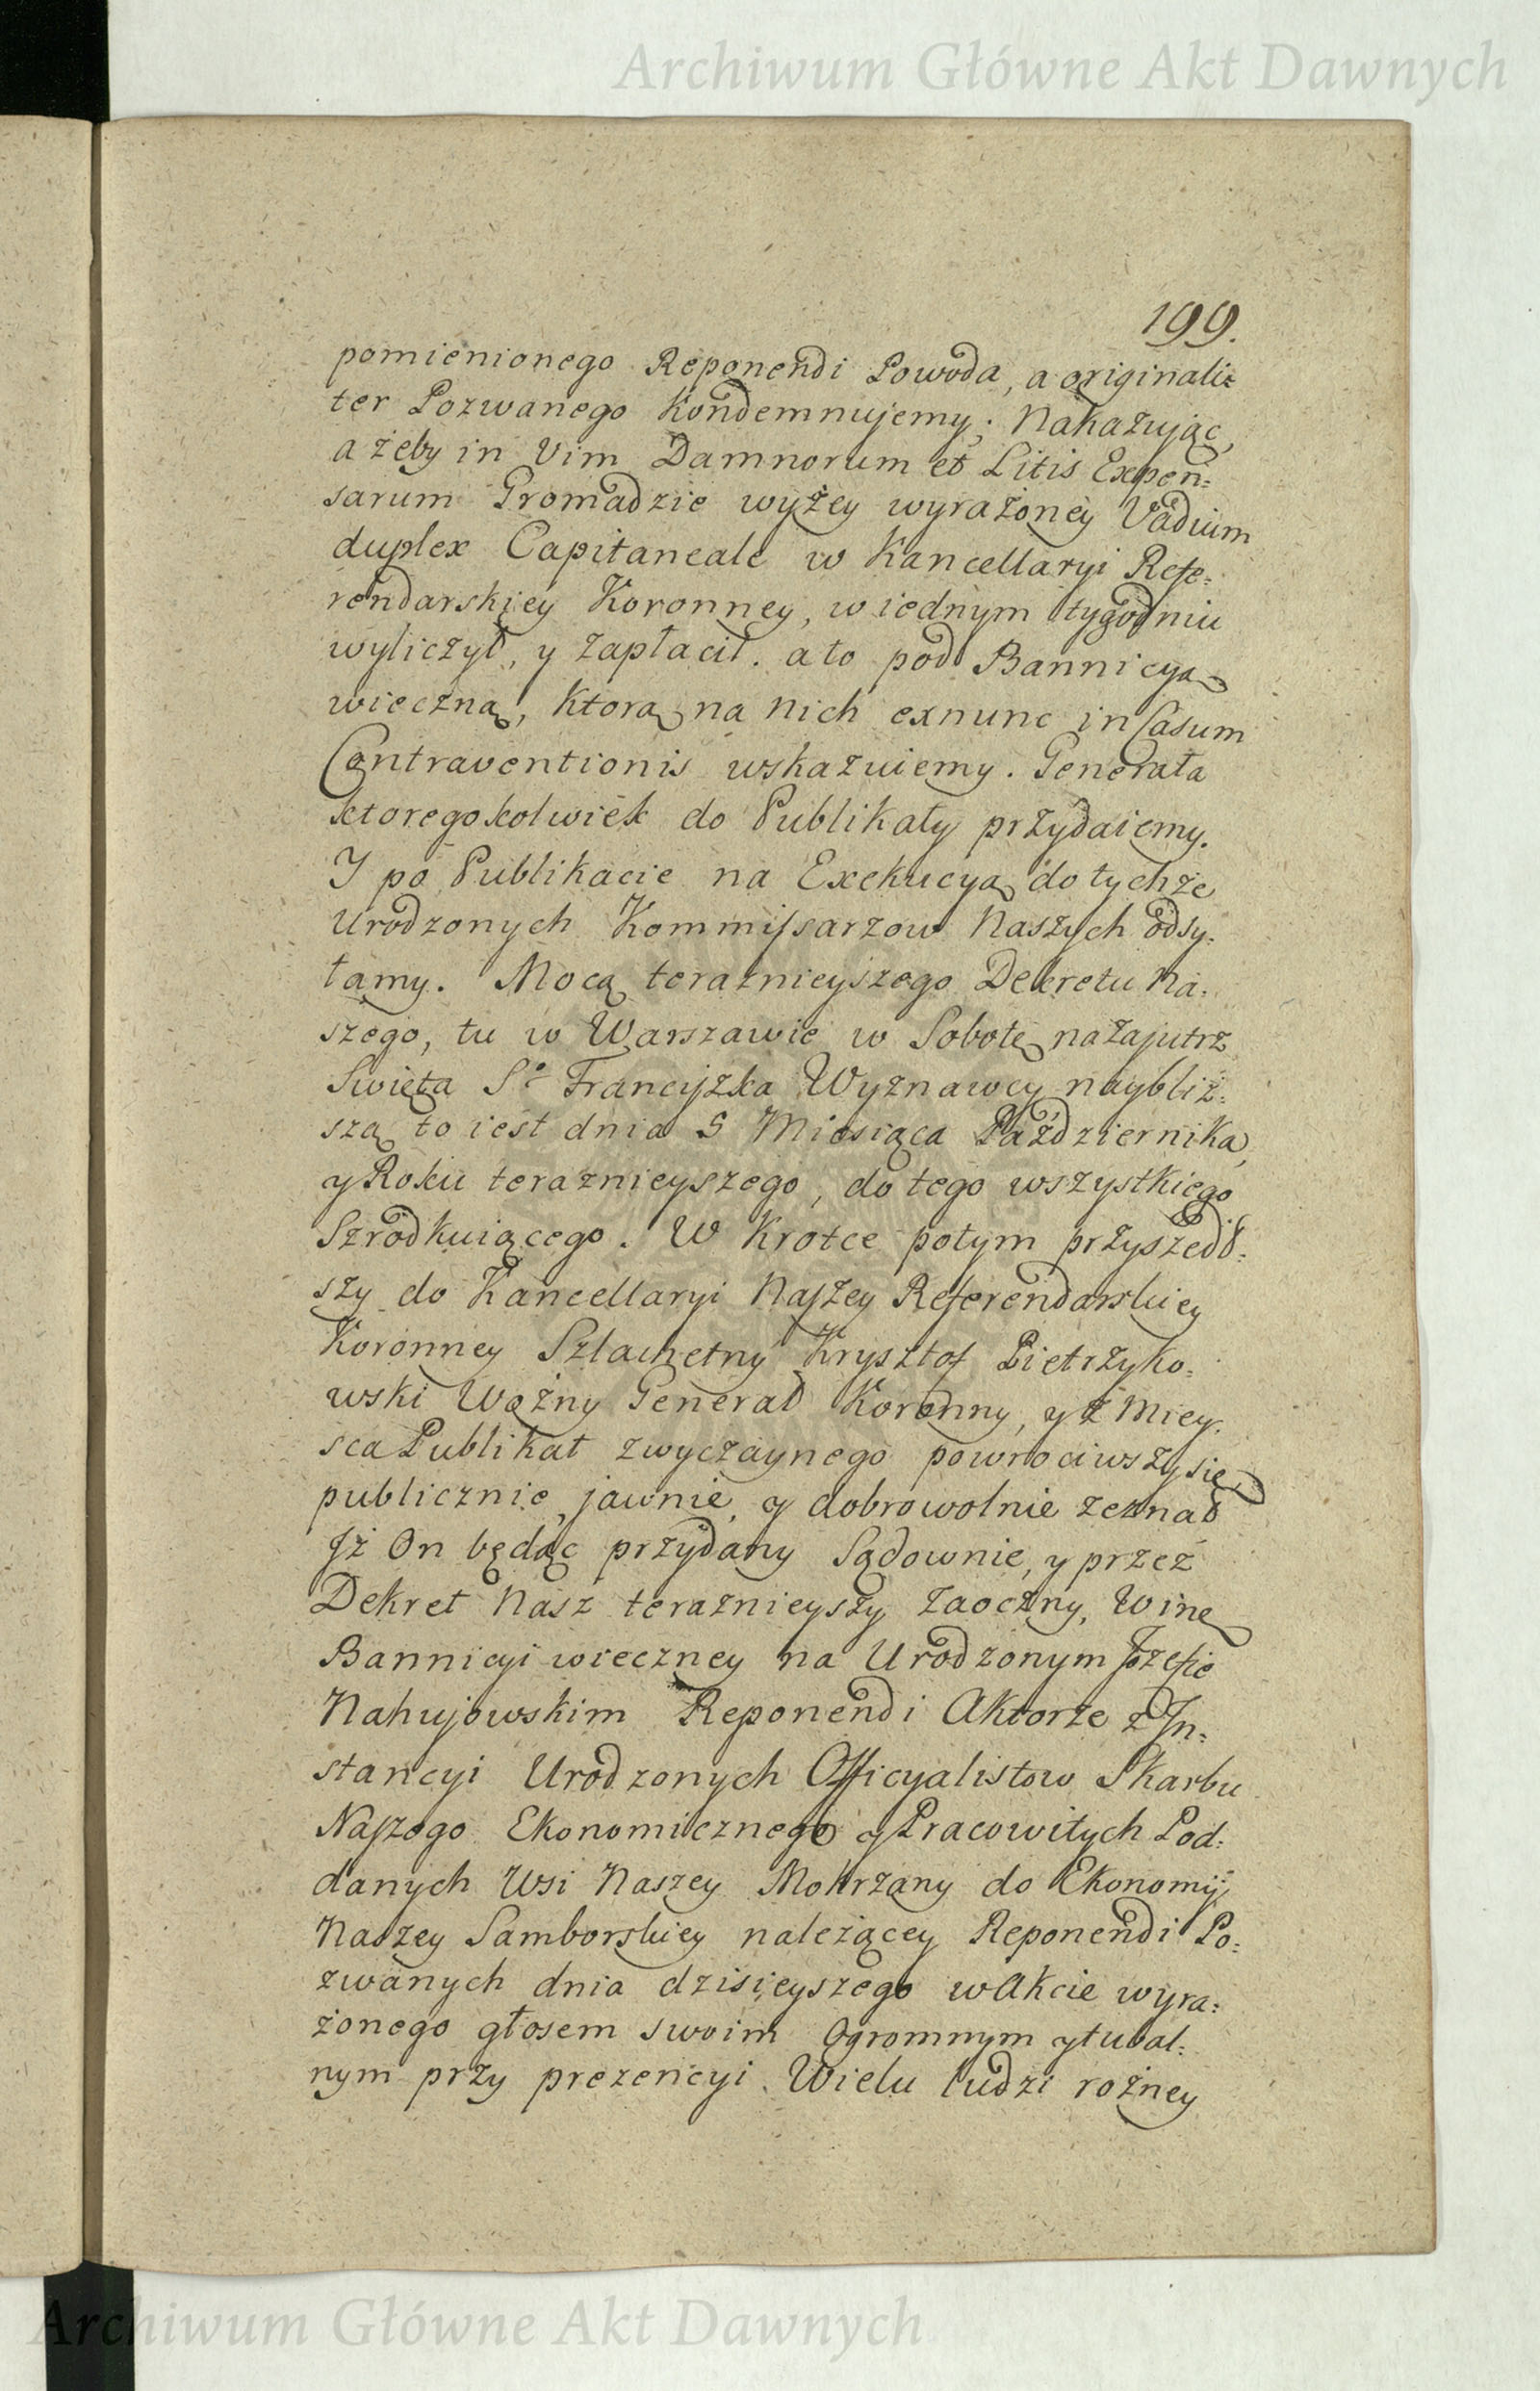 Archiwum Główne Akt Dawnych
199.
pomienionego Reponendi Powoda, a originali=
ter Pozwanego Kondemnujemy; Nakazując,
ażeby in Vim Damnorum et Litis Expen:
sarum Gromadzie wyżey wyrażoney Vadium
duplex Capitaneale w Kancellaryi Refe:
rendarskiey Koronney, w iednym tygodniu
wyliczył, y zapłacił. a to pod Bannicyą
wieczną, ktorą na nich exnunc in Casum
Contraventionis wskazuiemy. Generała
ktoregokolwiek do Publikaty przydaiemy.
I po Publikacie na Exekucyą do tychże
Urodzonych Kommissarzow Naszych odsy:
łamy. Mocą teraznieyszego Dekretu Na:
szego, tu w Warszawie w Sobotę nazajutrz
Swięta So Franciszka Wyznawcy naybliż:
szą to iest dnia 5 Miesiąca Października,
y Roku teraznieyszego, do tego wszystkiego
Szrodkuiącego. W Krotce potym przyszedł:
szy do Kancellaryi Naszey Referendarskiey
Koronney Szlachetny Krysztof Pietrzyko:
wski Woźny Generał Koronny, y z Miey:
sca Publikat zwyczaynego powrociwszy się,
publicznie, jawnie, y dobrowolnie zeznał
Jż On będąc przydany Sądownie, y przez
Dekret Nasz teraznieyszy Zaoczny, Winę
Bannicyi wieczney na Urodzonym Jozefie
Nahujowskim Reponendi Aktorze z In:
stancyi Urodzonych Officyalistow Skarbu
Naszego Ekonomicznego y Pracowitych Pod:
danych Wsi Naszey Mokrzany do Ekonomij
Naszey Samborskiey należącey Reponendi Po:
zwanych dnia dzisieyszego w Akcie wyra:
żonego głosem swoim Ogromnym y tubal:
nym przy prezencyi Wielu ludzi rożney
Archiwum Główne Akt Dawnych